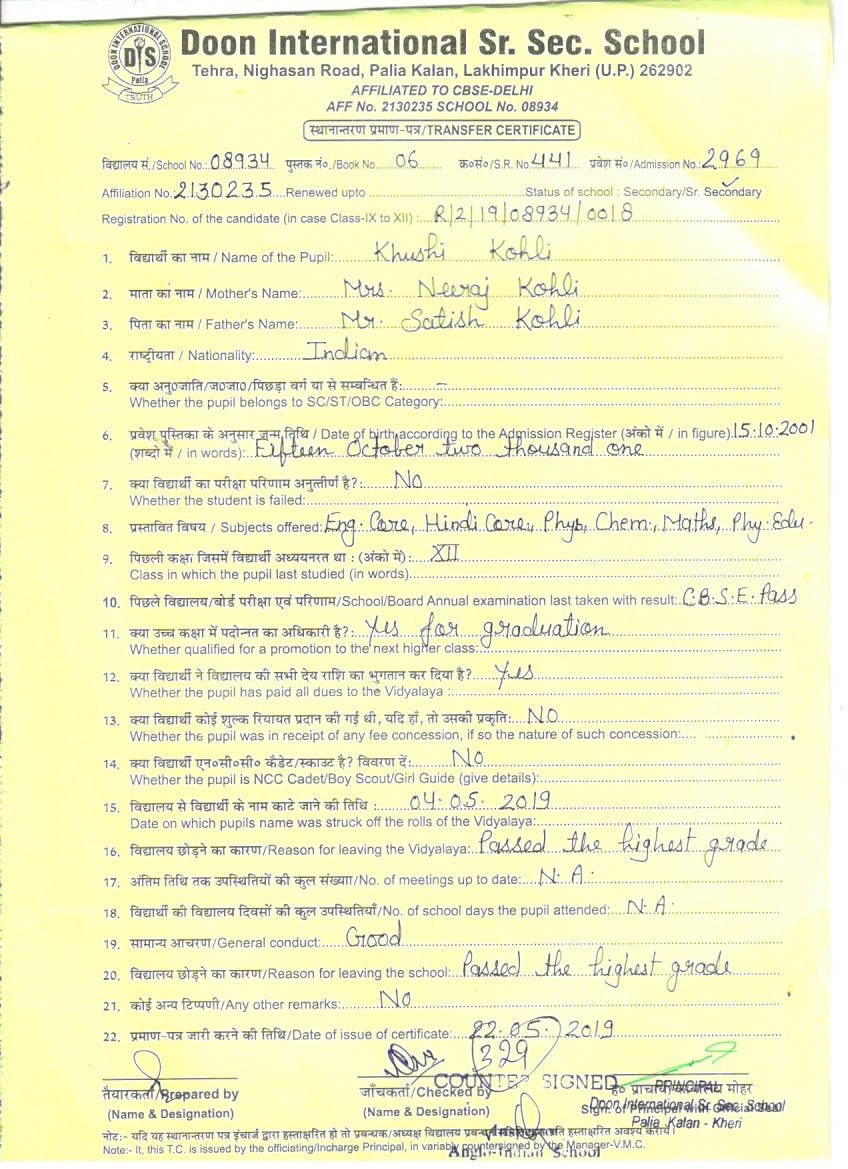 DOON INTERNATIONAL SCHOOL
DIS
Palia
TRUTH
Doon International Sr. Sec. School
Tehra, Nighasan Road, Palia Kalan, Lakhimpur Kheri (U.P.) 262902
AFFILIATED TO CBSE-DELHI
AFF No. 2130235 SCHOOL No. 08934
स्थानान्तरण प्रमाण-पत्र/TRANSFER CERTIFICATE
विद्यालय सं./School No.: 08934 पुस्तक नं०./Book No. 06 क्र०सं०/S.R. No. 441 प्रवेश सं०/Admission No.: 2969
Affiliation No.: 2130235 Renewed upto Status of school : Secondary/Sr. Secondary
Registration No. of the candidate (in case Class-IX to XII) : R/2/19/08934/0018
1. विद्यार्थी का नाम / Name of the Pupil: Khushi Kohli
2. माता का नाम / Mother's Name: Mrs. Neeraj Kohli
3. पिता का नाम / Father's Name: Mr. Satish Kohli
4. राष्ट्रीयता / Nationality: Indian
5. क्या अनु०जाति/ज०जा०/पिछड़ा वर्ग या से सम्बन्धित हैं: –
Whether the pupil belongs to SC/ST/OBC Category:
6. प्रवेश पुस्तिका के अनुसार जन्म तिथि / Date of birth according to the Admission Register (अंको में / in figure) 15.10.2001
(शब्दो में / in words): Fifteen October two thousand one
7. क्या विद्यार्थी का परीक्षा परिणाम अनुत्तीर्ण है?: No
Whether the student is failed:
8. प्रस्तावित विषय / Subjects offered: Eng. Core, Hindi Core, Phys, Chem., Maths, Phy. Edu.
9. पिछली कक्षा जिसमें विद्यार्थी अध्ययनरत था : (अंको में): XII
Class in which the pupil last studied (in words)
10. पिछले विद्यालय/बोर्ड परीक्षा एवं परिणाम/School/Board Annual examination last taken with result: C.B.S.E. Pass
11. क्या उच्च कक्षा में पदोन्नत का अधिकारी है?: Yes for graduation
Whether qualified for a promotion to the next higher class:
12. क्या विद्यार्थी ने विद्यालय की सभी देय राशि का भुगतान कर दिया है? Yes
Whether the pupil has paid all dues to the Vidyalaya :
13. क्या विद्यार्थी कोई शुल्क रियायत प्रदान की गई थी, यदि हाँ, तो उसकी प्रकृति: NO
Whether the pupil was in receipt of any fee concession, if so the nature of such concession:
14. क्या विद्यार्थी एन०सी०सी० कैडेट/स्काउट है? विवरण दें: No
Whether the pupil is NCC Cadet/Boy Scout/Girl Guide (give details):
15. विद्यालय से विद्यार्थी के नाम काटे जाने की तिथि : 04.05.2019
Date on which pupils name was struck off the rolls of the Vidyalaya:
16. विद्यालय छोड़ने का कारण/Reason for leaving the Vidyalaya: Passed the highest grade
17. अंतिम तिथि तक उपस्थितियों की कुल संख्या/No. of meetings up to date: N.A.
18. विद्यार्थी की विद्यालय दिवसों की कुल उपस्थितियाँ/No. of school days the pupil attended: N.A.
19. सामान्य आचरण/General conduct: Good
20. विद्यालय छोड़ने का कारण/Reason for leaving the school: Passed the highest grade
21. कोई अन्य टिप्पणी/Any other remarks: No
22. प्रमाण-पत्र जारी करने की तिथि/Date of issue of certificate: 22.05.2019
329
COUNTER SIGNED
तैयारकर्ता/Prepared by जाँचकर्ता/Checked by ह० प्राचार्य मोहर
PRINCIPAL
(Name & Designation) (Name & Designation) Sign. of Principal with Official Seal
Doon International Sr. Sec. School
Palia Kalan - Kheri
नोट:- यदि यह स्थानान्तरण पत्र इंचार्ज द्वारा हस्ताक्षरित हो तो प्रबन्धक/अध्यक्ष विद्यालय हस्ताक्षरित अवश्य कराये।
Note:- It, this T.C. is issued by the officiating/Incharge Principal, in variably countersigned by the Manager-V.M.C.
Anglo-Indian School